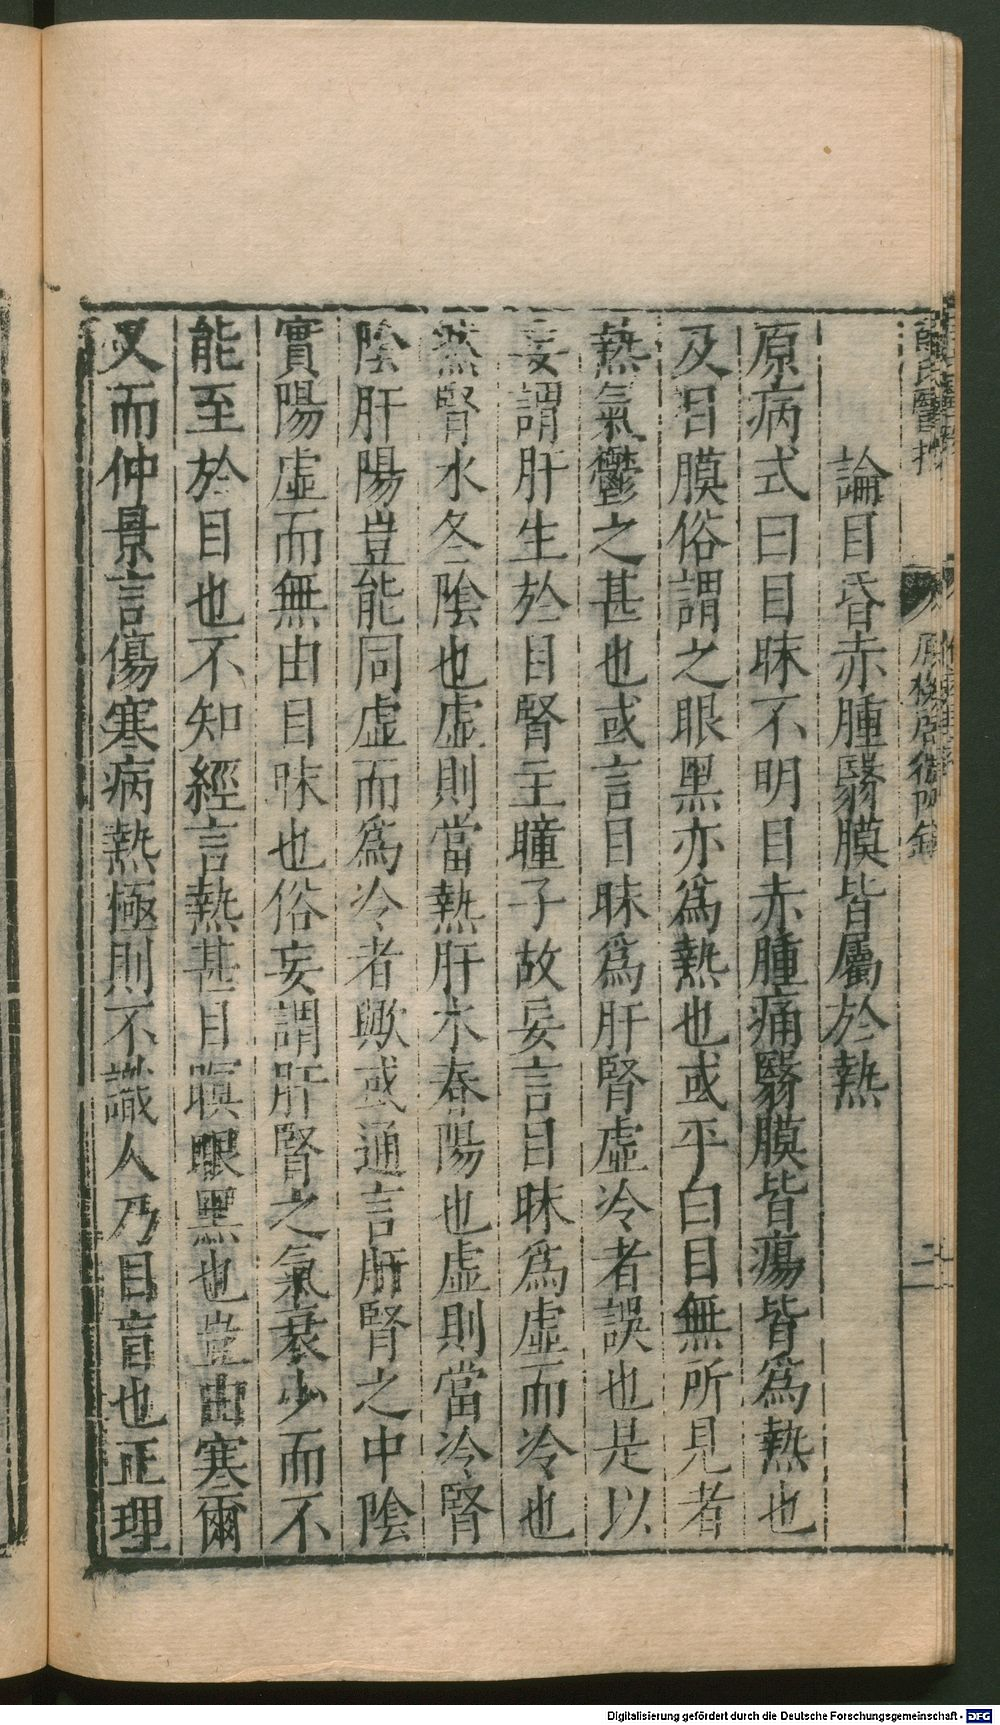 論目昏赤腫翳膜皆屬於熱
原病式曰目昧不明目赤腫痛翳膜皆瘍皆爲熱也
及目膜俗謂之眼黑亦爲熱也或平白目無所見者
熱氣鬱之甚也或言目昧爲肝腎虛冷者誤也是以
妄謂肝生於目腎主瞳子故妄言目昧爲虛而冷也
然腎水冬陰也虛則當熱肝木春陽也虛則當冷腎
陰肝陽豈能同虛而爲冷者歟或通言肝腎之中陰
實陽虛而無由目昧也俗妄謂肝腎之氣衰少而不
能至於目也不知經言熱甚目瞑眼黑也豈由寒爾
又而仲景言傷寒病熱極則不識人乃目盲也正理
原機啓微附錄
二
Digitalisierung gefördert durch die Deutsche Forschungsgemeinschaft - DFG